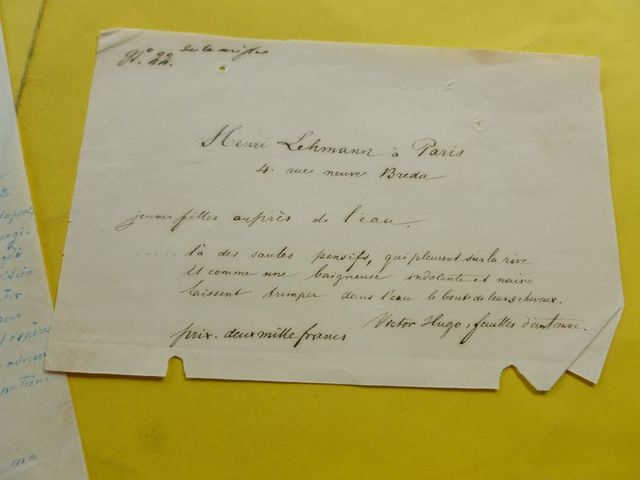 de la
Henri Lehmann à Paris
4. rue neuve Breda
jeunes filles auprès de l'eau.
..... là des saules pensifs, qui pleurent sur la rive
Et comme une baigneuse indolente et naïve
laissent tremper dans l'eau le bout de leurs cheveux.
Victor Hugo, feuilles d'automne.
prix. deux mille francs